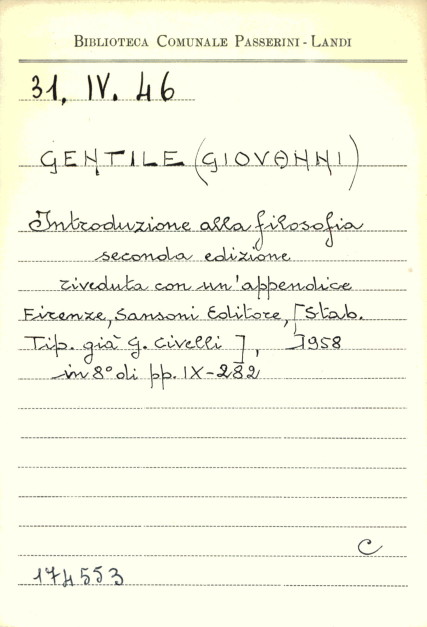 BIBLIOTECA COMUNALE PASSERINI-LANDI
31, IV. 46
GENTILE (GIOVANNI)
Introduzione alla filosofia
seconda edizione
riveduta con un'appendice
Firenze, Sansoni Editore, [Stab.
Tip. già G. Civelli], 1958
in 8° di pp. IX-282
C
174553